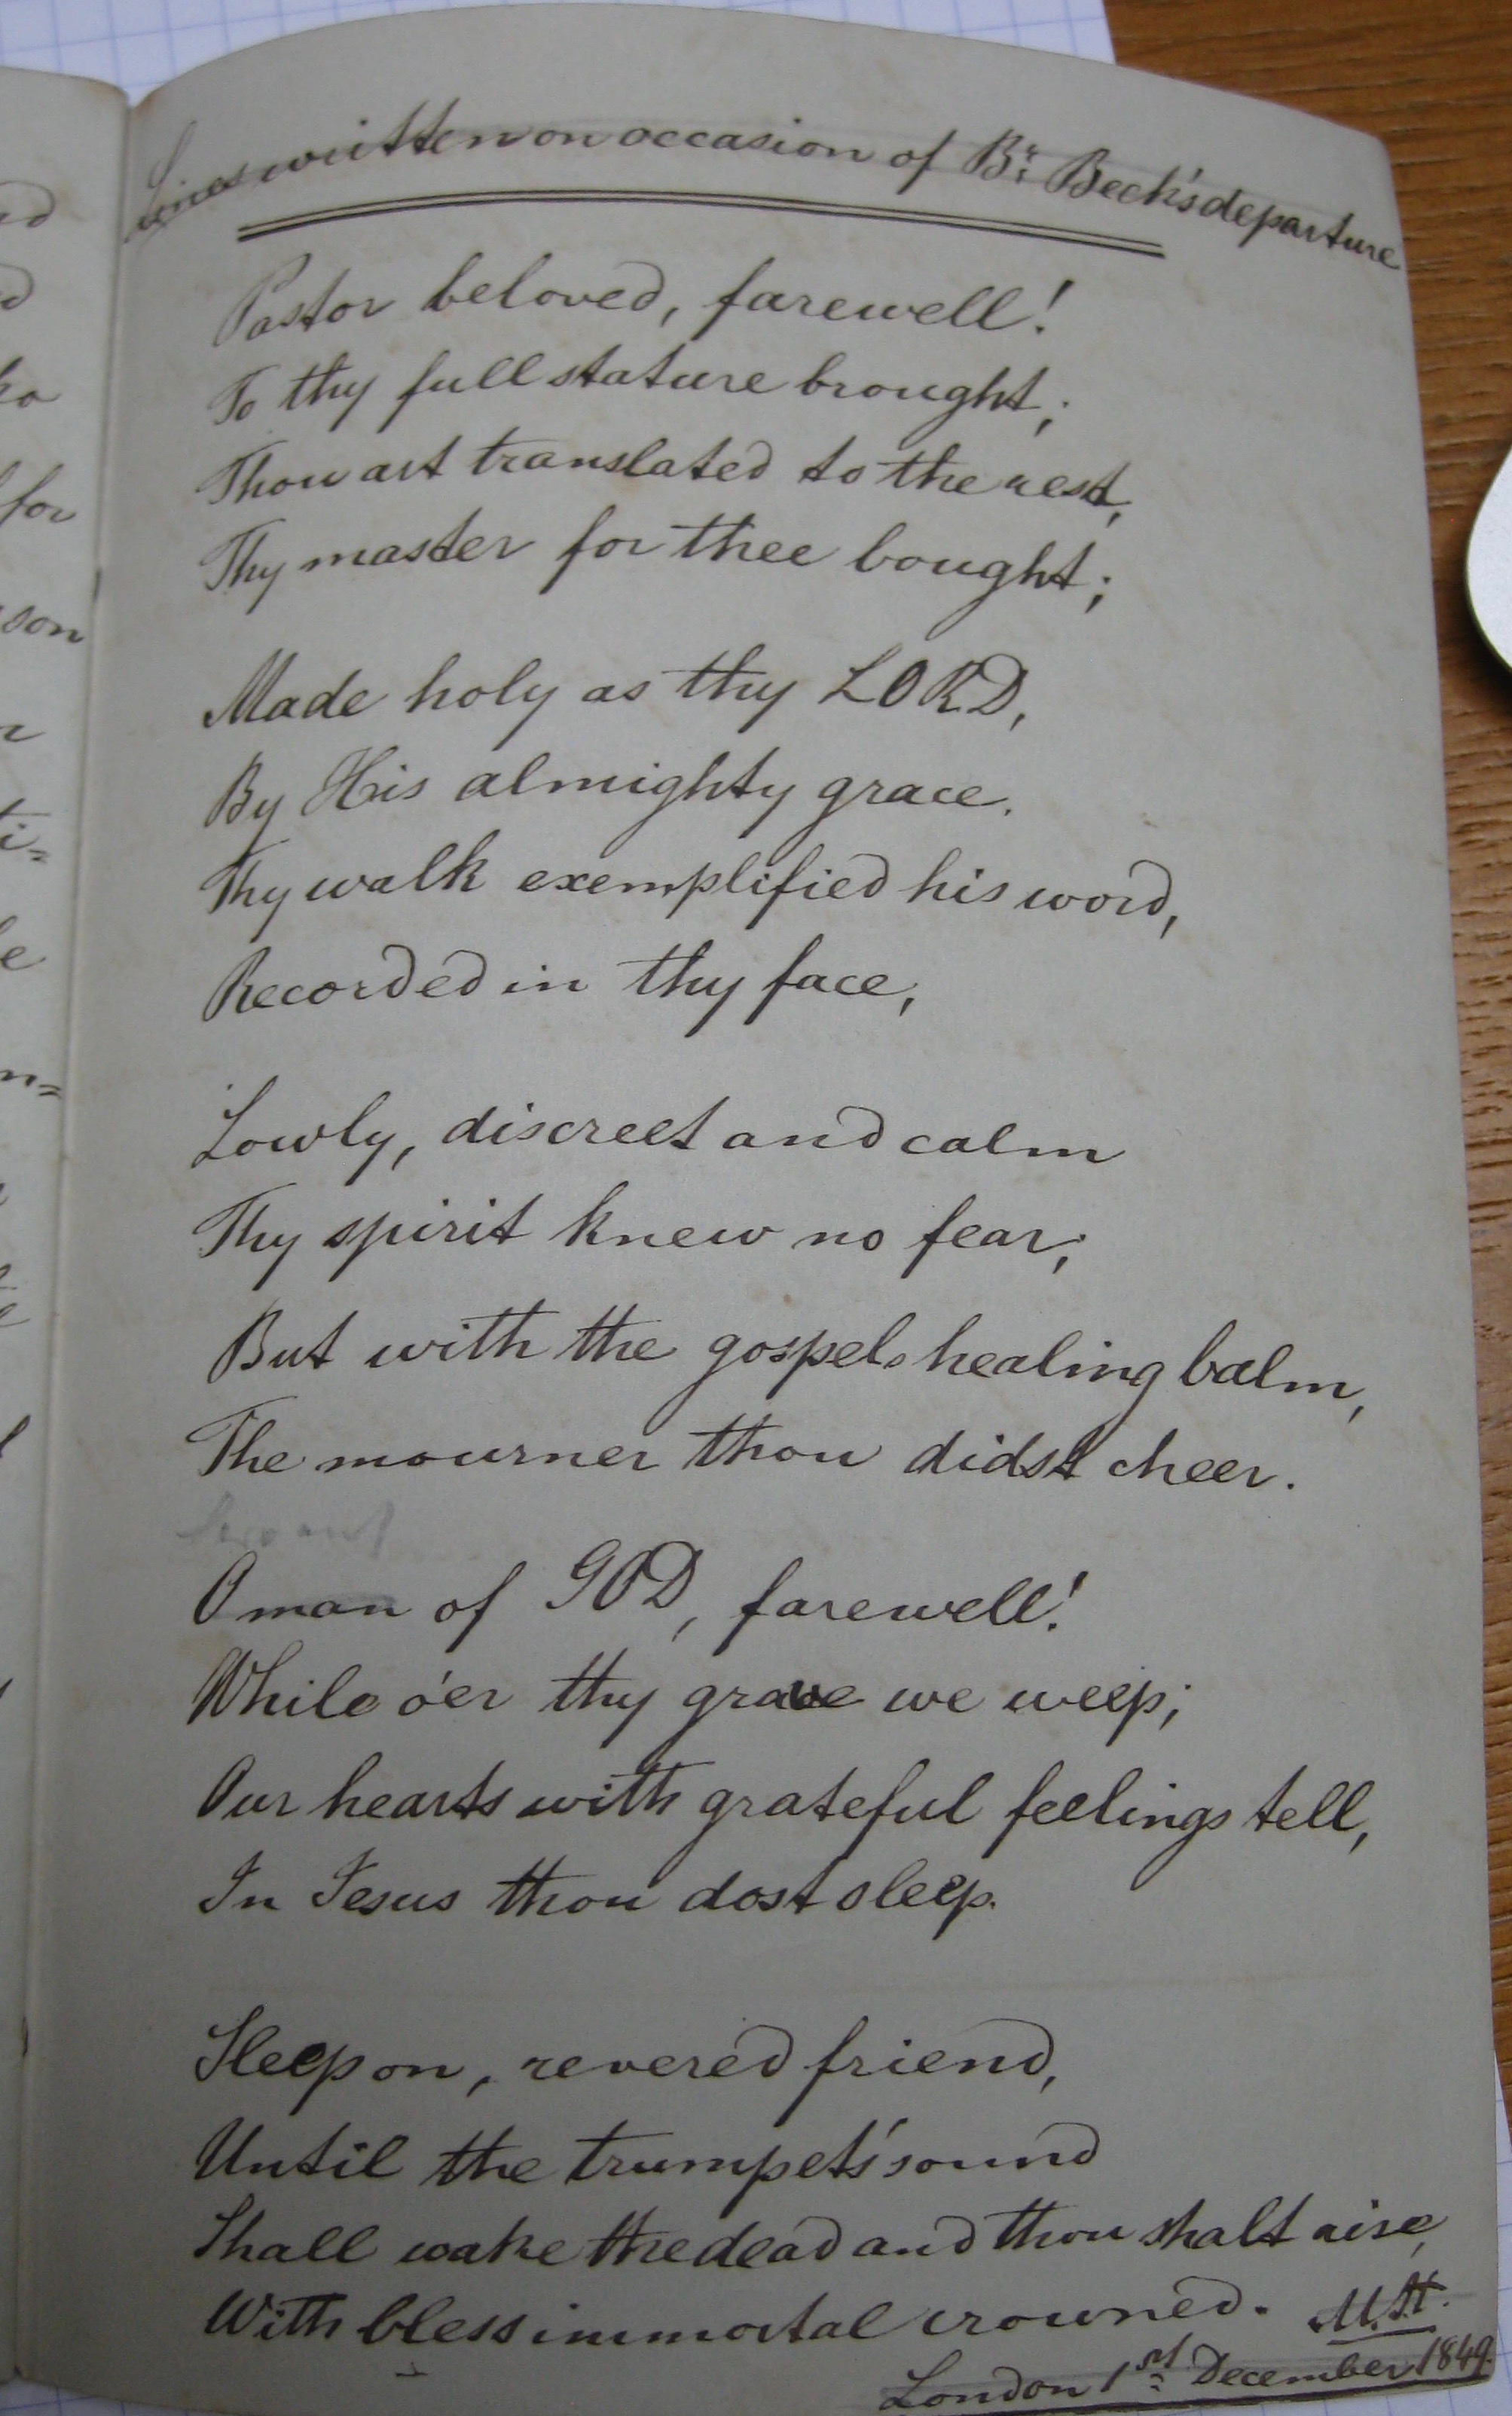 Lines written on occasion of Br. Beck's departure
Pastor beloved, farewell!
To thy full stature brought;
Thou art translated to the rest,
Thy master for thee bought;
Made holy as thy LORD,
By His almighty grace.
Thy walk exemplified his word,
Recorded in thy face;
Lowly, discreet and calm
Thy spirit knew no fear;
But with the gospels healing balm,
The mourner thou didst cheer.
servant
O man of GOD, farewell!
While o'er thy grave we weep;
Our hearts with grateful feelings tell,
In Jesus thou dost sleep.
Sleep on, revered friend,
Until the trumpets' sound
Shall wake the dead and thou shalt rise,
With bless immortal crowned. M.H.
London 1st December 1849.